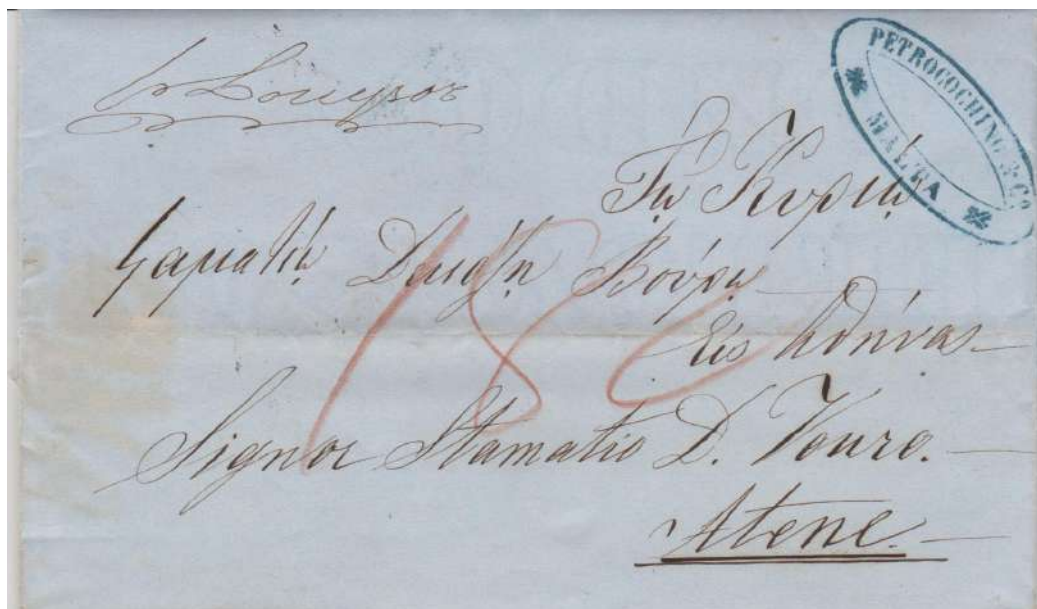 PETROCOCHINO & Co.
MALTA
Τῷ Κυρίῳ
Σταματίῳ Δεκόζη Βούρῳ
Εἰς Ἀθήνας
180
Signor Stamatio D. Vouro.
Atene.